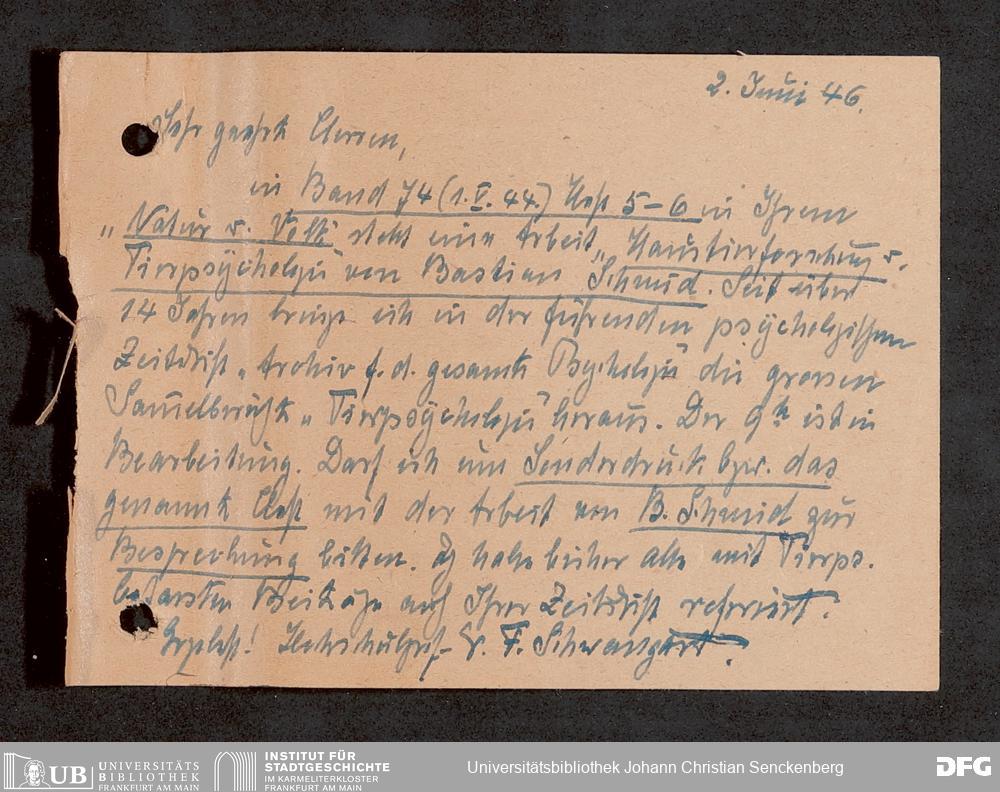 2. Juni 46.
Sehr geehrte Herren,
in Band 74 (1. V. 44.) Heft 5–6 in Ihrem
„Natur u. Volk" steht eine Arbeit „Haustierforschung u.
Tierpsychologie" von Bastian Schmid. Seit über
14 Jahren bringe ich in der führenden psychologischen
Zeitschrift „Archiv f. d. gesamte Psychologie" die grossen
Sam̄elberichte „Tierpsychologie" heraus. Der 9te ist in
Bearbeitung. Darf ich um Sonderdruck bzw. das
genannte Heft mit der Arbeit von B. Schmid zur
Besprechung bitten. Ich habe bisher alle mit Tierps.
befassten Beiträge auch Ihrer Zeitschrift referiert.
Ergebenst! Hochschulprof. Dr. F. Schwangart.
UB UNIVERSITÄTS
BIBLIOTHEK
FRANKFURT AM MAIN
INSTITUT FÜR
STADTGESCHICHTE
IM KARMELITERKLOSTER
FRANKFURT AM MAIN
Universitätsbibliothek Johann Christian Senckenberg
DFG